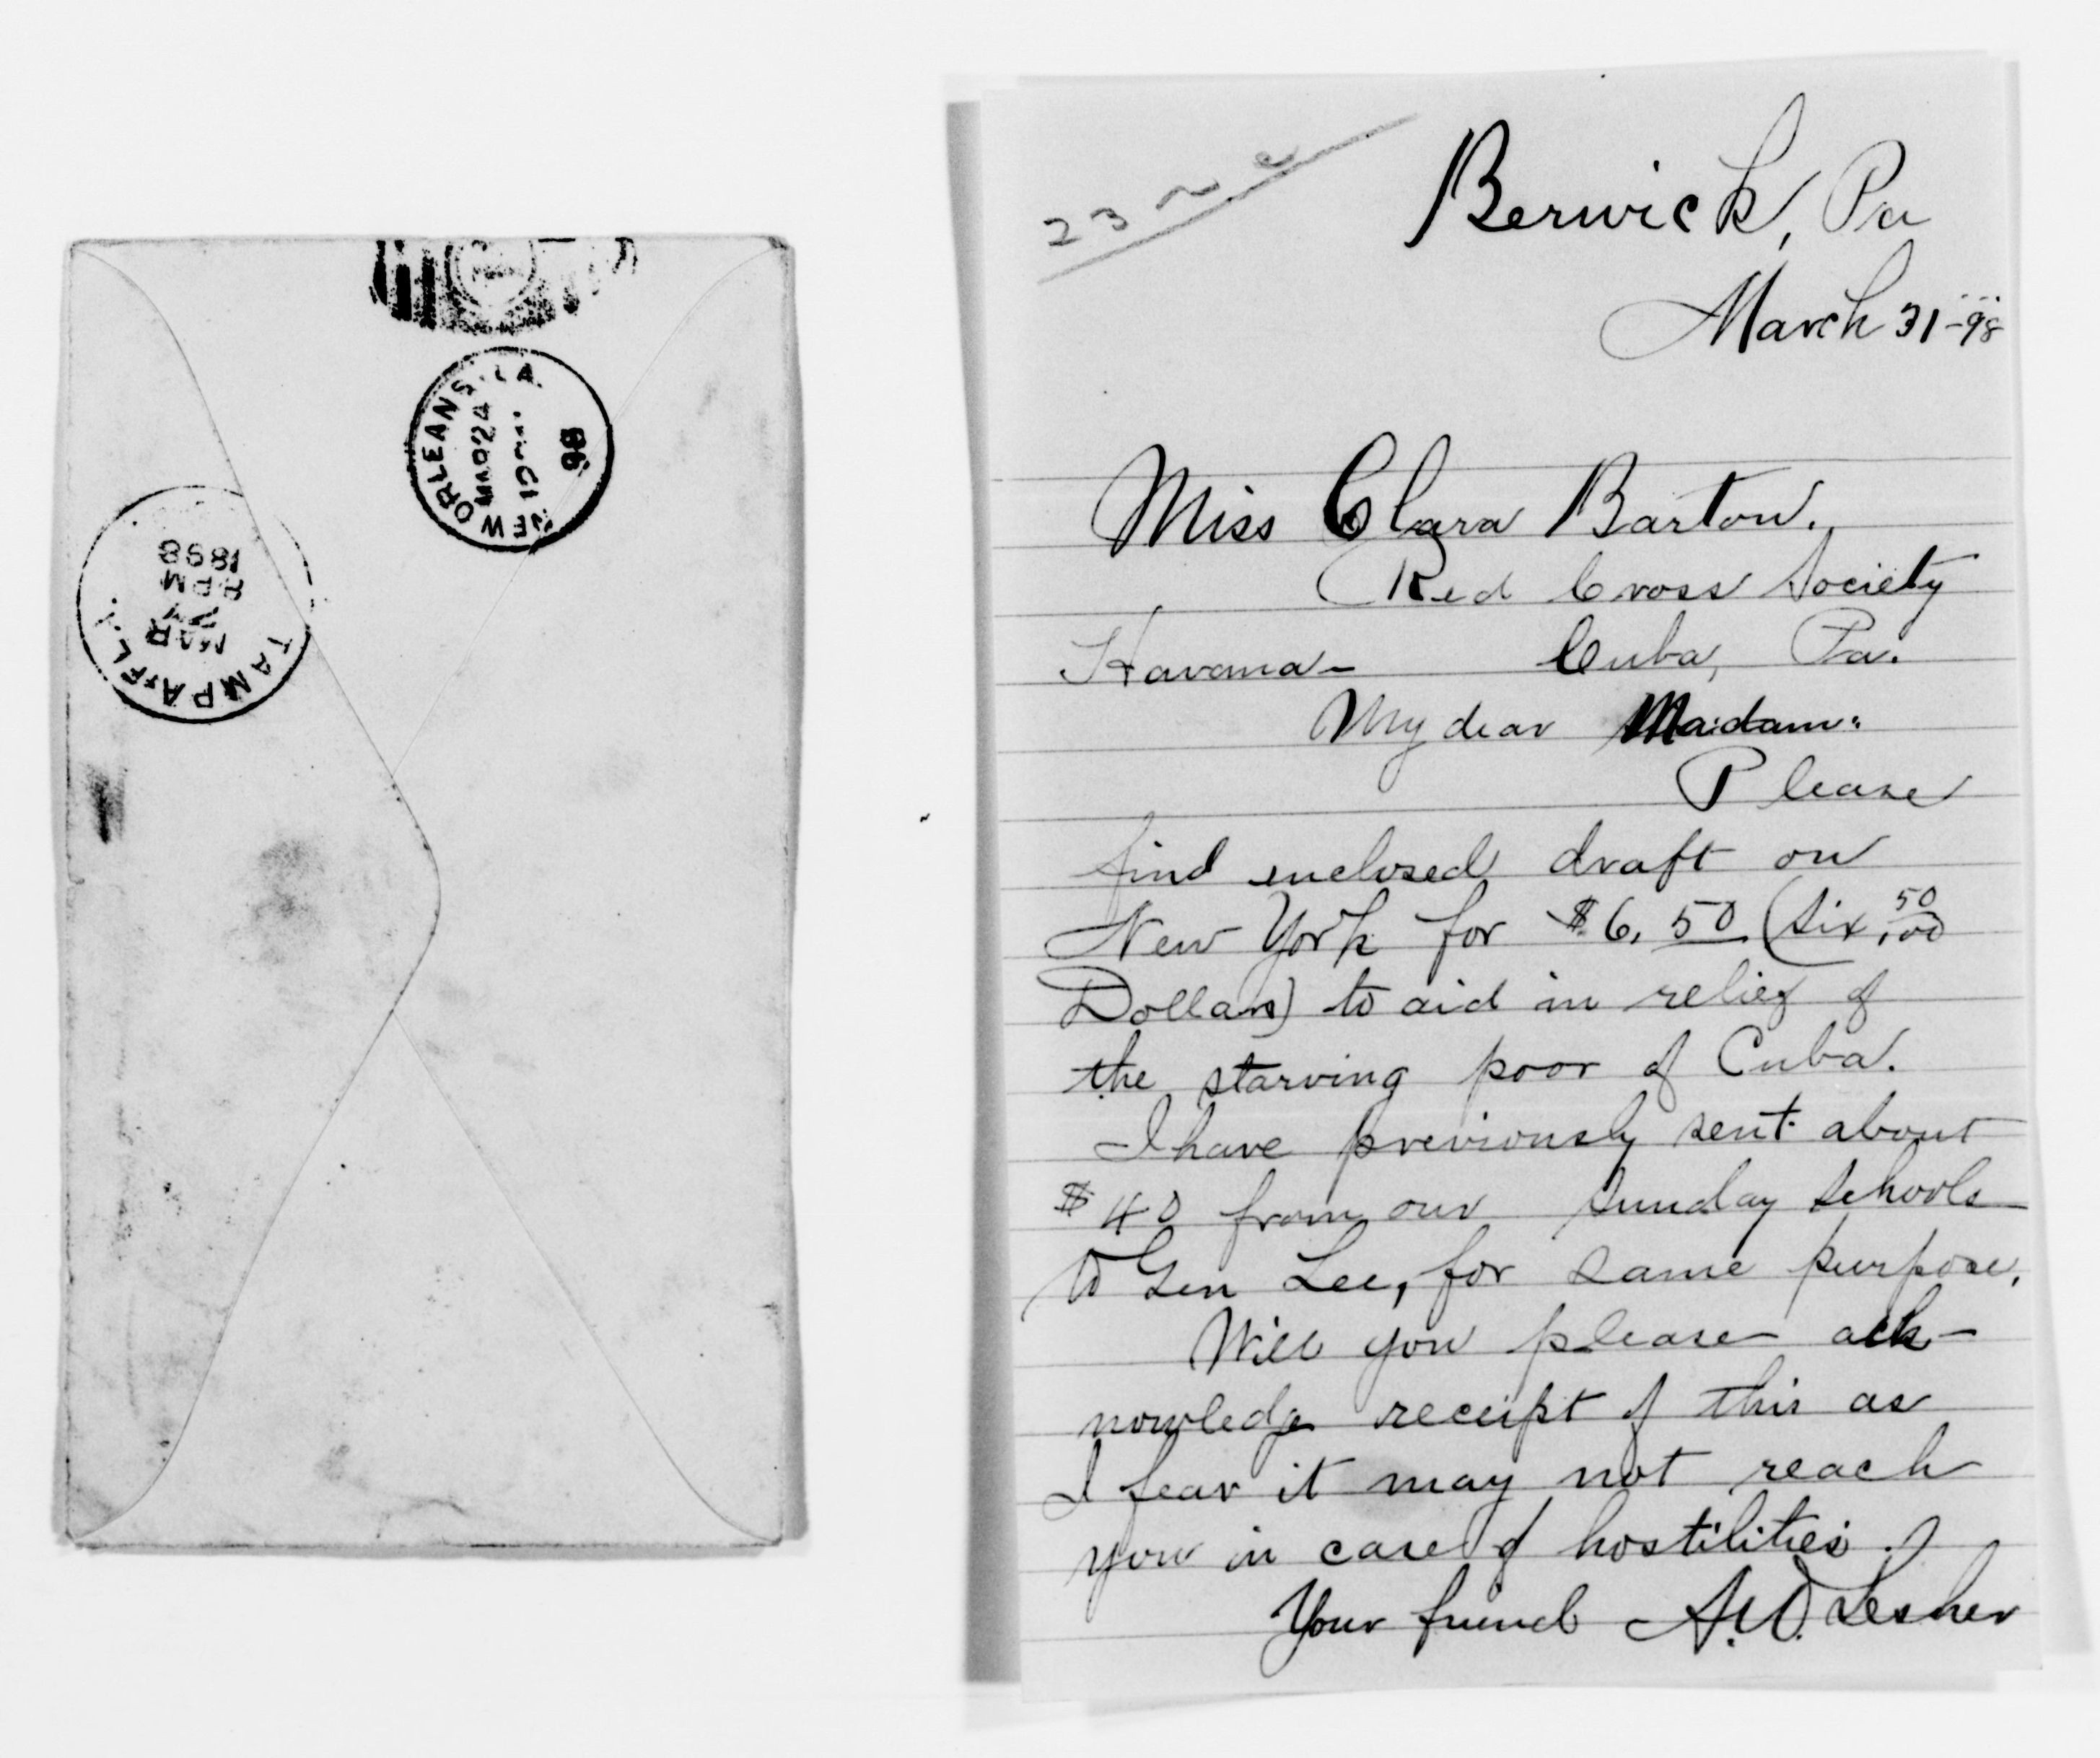 NEW ORLEANS, LA.
MAR 24
12
98
TAMPA, FLA.
MAR
8 PM
1898
23
Berwick, Pa
March 31-98
Miss Clara Barton.
Red Cross Society
Havana- Cuba, Pa.
My dear Madam:
Please
find enclosed draft on
New York for $6.50 (Six, 50/00
Dollars) to aid in relief of
the starving poor of Cuba.
I have previously sent about
$40 from our Sunday Schools
to Gen Lee, for same purpose.
Will you please ack-
nowledge receipt of this as
I fear it may not reach
you in case of hostilities.
Your friend A.W. Lesher